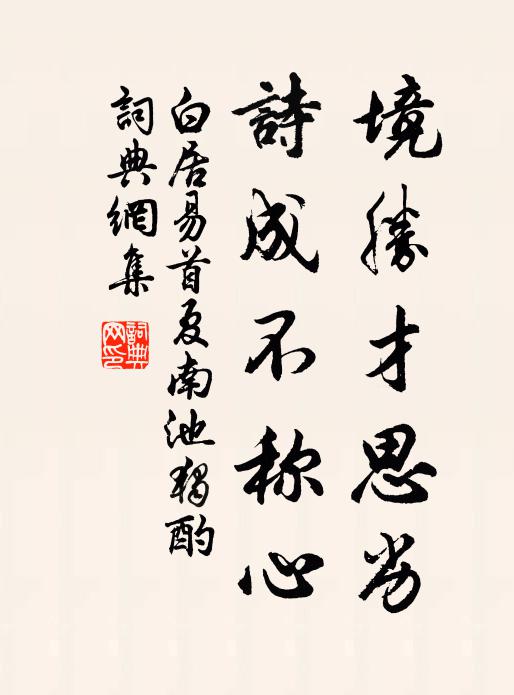 境勝才思劣
詩成不称心
白居易首夏南池獨酌
詞典網集
詞典網印